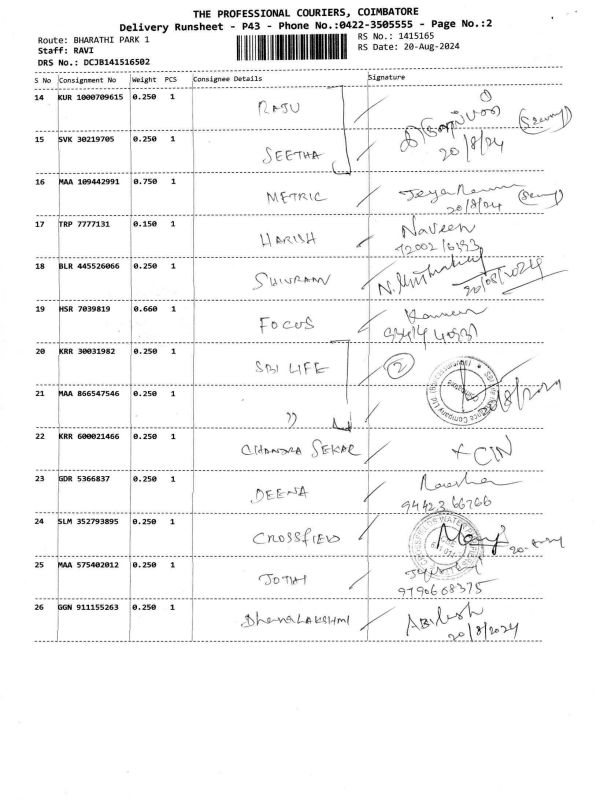 THE PROFESSIONAL COURIERS, COIMBATORE
Delivery Runsheet - P43 - Phone No.:0422-3505555 - Page No.:2
Route: BHARATHI PARK 1
RS No.: 1415165
Staff: RAVI
RS Date: 20-Aug-2024
DRS No.: DCJB141516502
S No Consignment No Weight PCS Consignee Details Signature
14 KUR 1000709615 0.250 1 RAJU
15 SVK 30219705 0.250 1 SEETHA 20/8/24
16 MAA 109442991 0.750 1 METRIC 20/8/24
17 TRP 7777131 0.150 1 HARISH Naveen
18 BLR 445526066 0.250 1 SHIVRAM 20/08/2024
19 HSR 7039819 0.660 1 FOCUS
20 KRR 30031982 0.250 1 SBI LIFE 2
21 MAA 866547546 0.250 1 "
22 KRR 600021466 0.250 1 CHANDRA SEKAR + CIN
23 GDR 5366837 0.250 1 DEENA
94423 66766
24 SLM 352793895 0.250 1 CROSSFIELD
25 MAA 575402012 0.250 1 JOTHI
9790668375
26 GGN 911155263 0.250 1 DhanaLAKSHMI ABilesh
20/8/2024